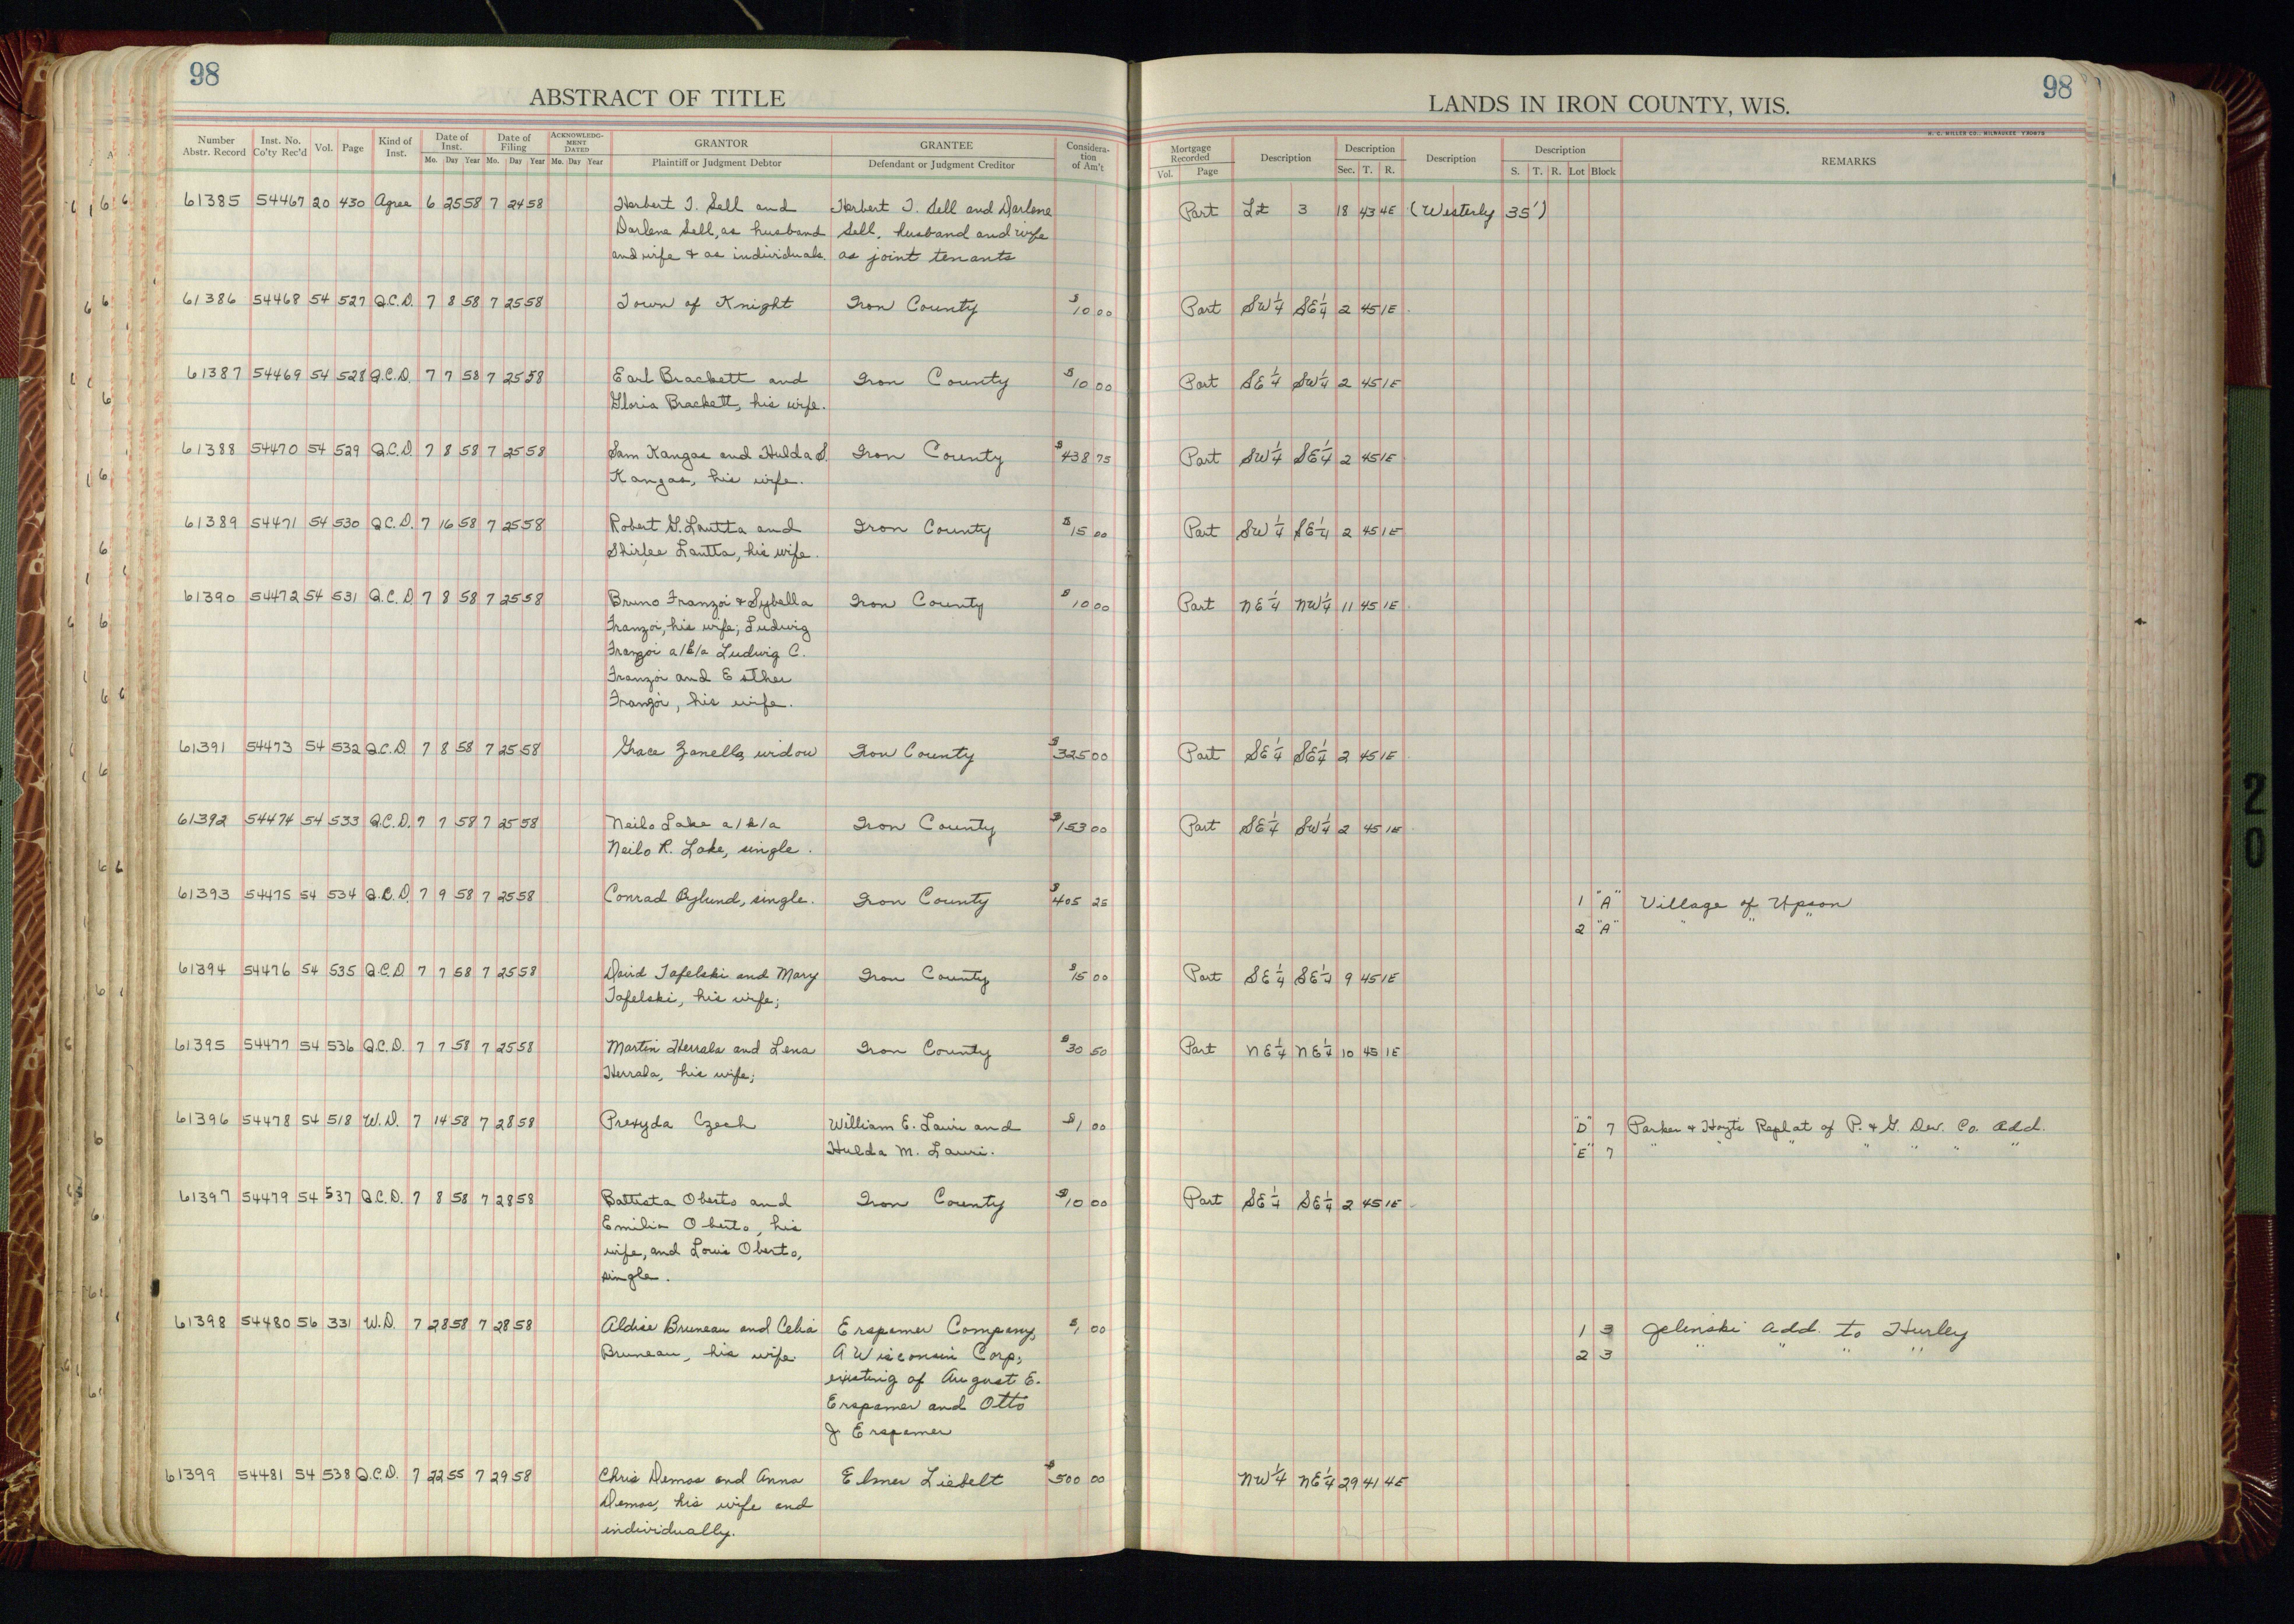 98
ABSTRACT OF TITLE
Number Abstr. Record Inst. No. Co'ty Rec'd Vol. Page Kind of Inst. Date of Inst. Mo. Day Year Date of Filing Mo. Day Year ACKNOWLEDGMENT DATED Mo. Day Year GRANTOR Plaintiff or Judgment Debtor GRANTEE Defendant or Judgment Creditor Consideration of Am't
98
LANDS IN IRON COUNTY, WIS.
H. C. MILLER CO., MILWAUKEE
Mortgage Recorded Vol. Page Description Description Sec. T. R. Description Description S. T. R. Lot Block REMARKS
61385 54467 20 430 Agree 6 25 58 7 24 58 Herbert T. Sell and Herbert T. Sell and Darlene Part Lt 3 18 43 4E (Westerly 35')
Darlene Sell, as husband Sell, husband and wife
and wife & as individuals. as joint tenants
61386 54468 54 527 Q.C.D. 7 8 58 7 25 58 Town of Knight Iron County $10 00 Part SW¼ SE¼ 2 45 1E
61387 54469 54 528 Q.C.D. 7 7 58 7 25 58 Earl Brackett and Iron County $10 00 Part SE¼ SW¼ 2 45 1E
Gloria Brackett, his wife.
61388 54470 54 529 Q.C.D. 7 8 58 7 25 58 Sam Kangas and Hulda S. Iron County $438 75 Part SW¼ SE¼ 2 45 1E
Kangas, his wife.
61389 54471 54 530 Q.C.D. 7 16 58 7 25 58 Robert G. Lautta and Iron County $15 00 Part SW¼ SE¼ 2 45 1E
Shirlee Lautta, his wife.
61390 54472 54 531 Q.C.D. 7 8 58 7 25 58 Bruno Franzoi & Sybella Iron County $10 00 Part NE¼ NW¼ 11 45 1E
Franzoi, his wife; Ludwig
Franzoi a/k/a Ludwig C.
Franzoi and Esther
Franzoi, his wife.
61391 54473 54 532 Q.C.D. 7 8 58 7 25 58 Grace Zanella, widow Iron County $325 00 Part SE¼ SE¼ 2 45 1E
61392 54474 54 533 Q.C.D. 7 7 58 7 25 58 Neilo Lake a/k/a Iron County $153 00 Part SE¼ SW¼ 2 45 1E
Neilo R. Lake, single.
61393 54475 54 534 Q.C.D. 7 9 58 7 25 58 Conrad Bylund, single. Iron County $405 25 1 "A" Village of Upson
2 "A" " " "
61394 54476 54 535 Q.C.D. 7 7 58 7 25 58 David Tafelski and Mary Iron County $15 00 Part SE¼ SE¼ 9 45 1E
Tafelski, his wife;
61395 54477 54 536 Q.C.D. 7 7 58 7 25 58 Martin Herrala and Lena Iron County $30 50 Part NE¼ NE¼ 10 45 1E
Herrala, his wife;
61396 54478 54 518 W.D. 7 14 58 7 28 58 Prexyda Czech William E. Lauri and $1 00 "D" 7 Parker & Hoyt's Replat of P. & G. Dev. Co. Add.
Hulda M. Lauri. "E" 7 " " " " " " "
61397 54479 54 537 Q.C.D. 7 8 58 7 28 58 Battista Oberto and Iron County $10 00 Part SE¼ SE¼ 2 45 1E
Emilia Oberto, his
wife, and Louis Oberto,
single.
61398 54480 56 331 W.D. 7 28 58 7 28 58 Aldise Bruneau and Celia Erspamer Company, $1 00 1 3 Jelinski Add. to Hurley
Bruneau, his wife. A Wisconsin Corp; 2 3 " " " "
existing of August E.
Erspamer and Otto
J. Erspamer
61399 54481 54 538 Q.C.D. 7 22 55 7 29 58 Chris Demos and Anna Elmer Liebelt $500 00 NW¼ NE¼ 29 41 4E
Demos, his wife and
individually.
20